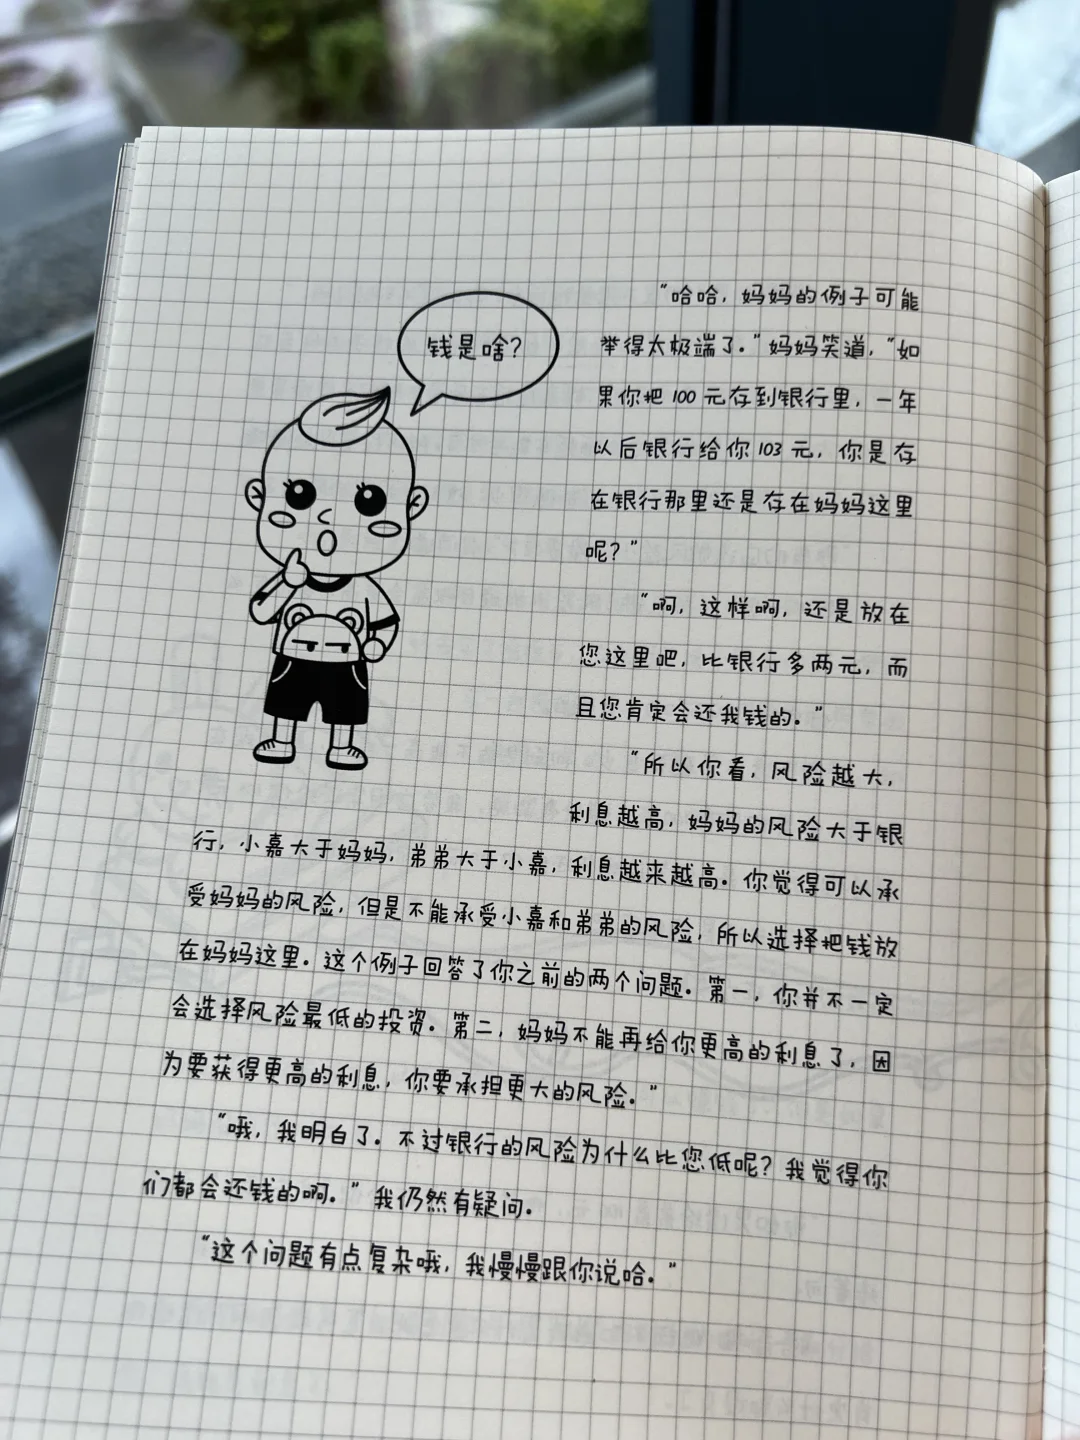 钱是啥？
“哈哈，妈妈的例子可能
举得太极端了。”妈妈笑道，“如
果你把 100 元存到银行里，一年
以后银行给你 103 元，你是存
在银行那里还是存在妈妈这里
呢？”
“啊，这样啊，还是放在
您这里吧，比银行多两元，而
且您肯定会还我钱的。”
“所以你看，风险越大，
利息越高，妈妈的风险大于银
行，小嘉大于妈妈，弟弟大于小嘉，利息越来越高。你觉得可以承
受妈妈的风险，但是不能承受小嘉和弟弟的风险，所以选择把钱放
在妈妈这里。这个例子回答了你之前的两个问题。第一，你并不一定
会选择风险最低的投资。第二，妈妈不能再给你更高的利息了，因
为要获得更高的利息，你要承担更大的风险。”
“哦，我明白了。不过银行的风险为什么比您低呢？我觉得你
们都会还钱的啊。”我仍然有疑问。
“这个问题有点复杂哦，我慢慢跟你说哈。”